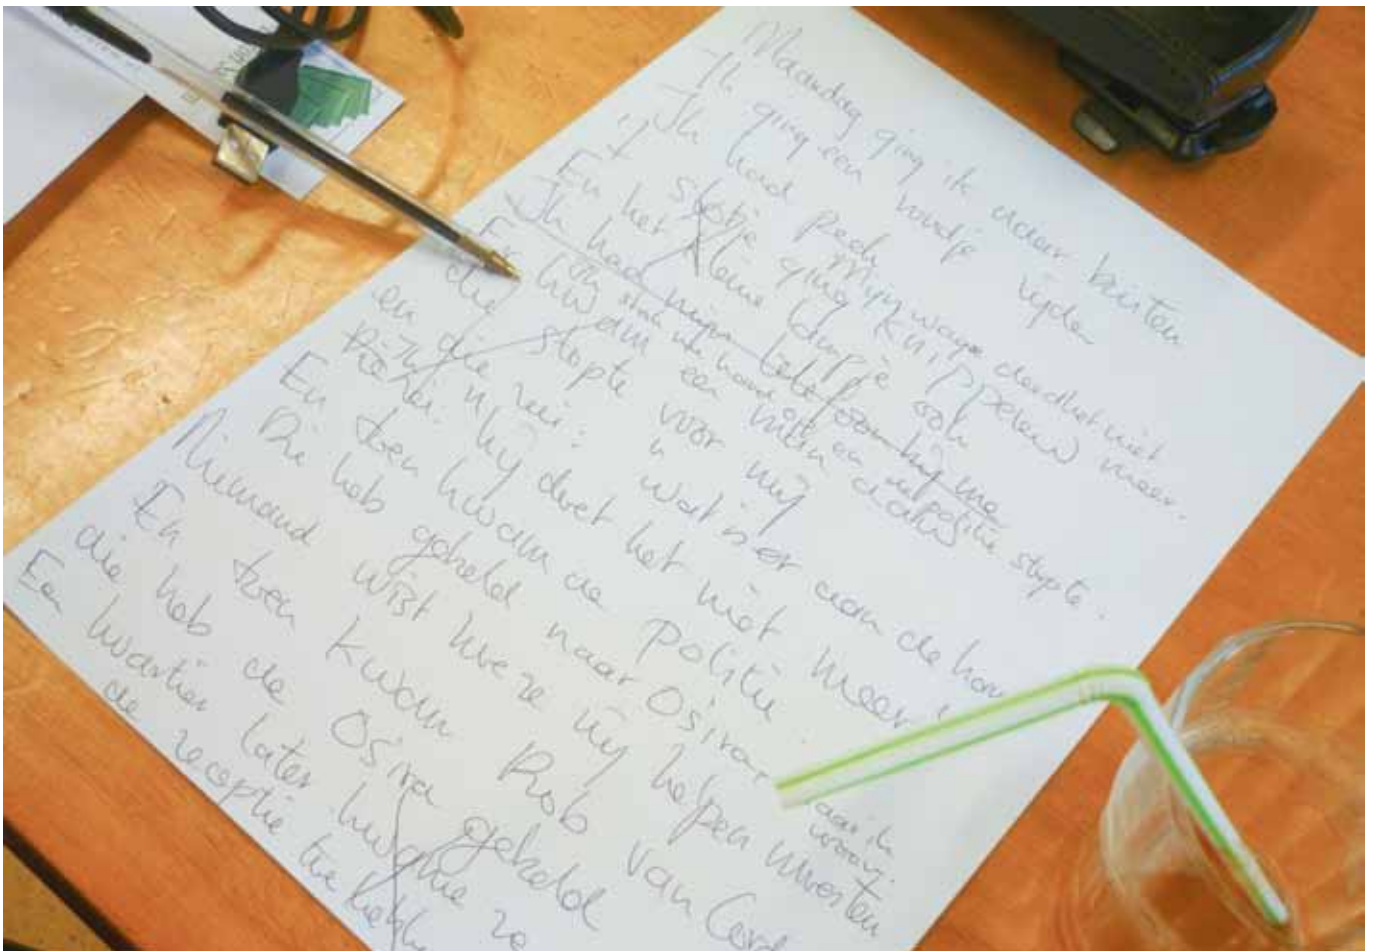 Maandag ging ik naar buiten
-Ik ging een rondje rijden
-Ik had pech. Mijn wagen deed het niet meer.
't Slotje ging knipperen
En het kleine lampje ook
-Ik had mijn telefoon bij me
Ik stak mijn hand uit en de politie stopte.
En kwam een man
die stopte voor mij
en die zei: wat is er aan de
Hij doet het niet meer
En toen kwam de politie
Die heb gebeld naar Osira, waar ik woon.
Niemand wist hoe ze mij helpen moesten
En toen kwam Rob van
die heb de Osira gebeld
Een kwartier later kwam ze
de receptie